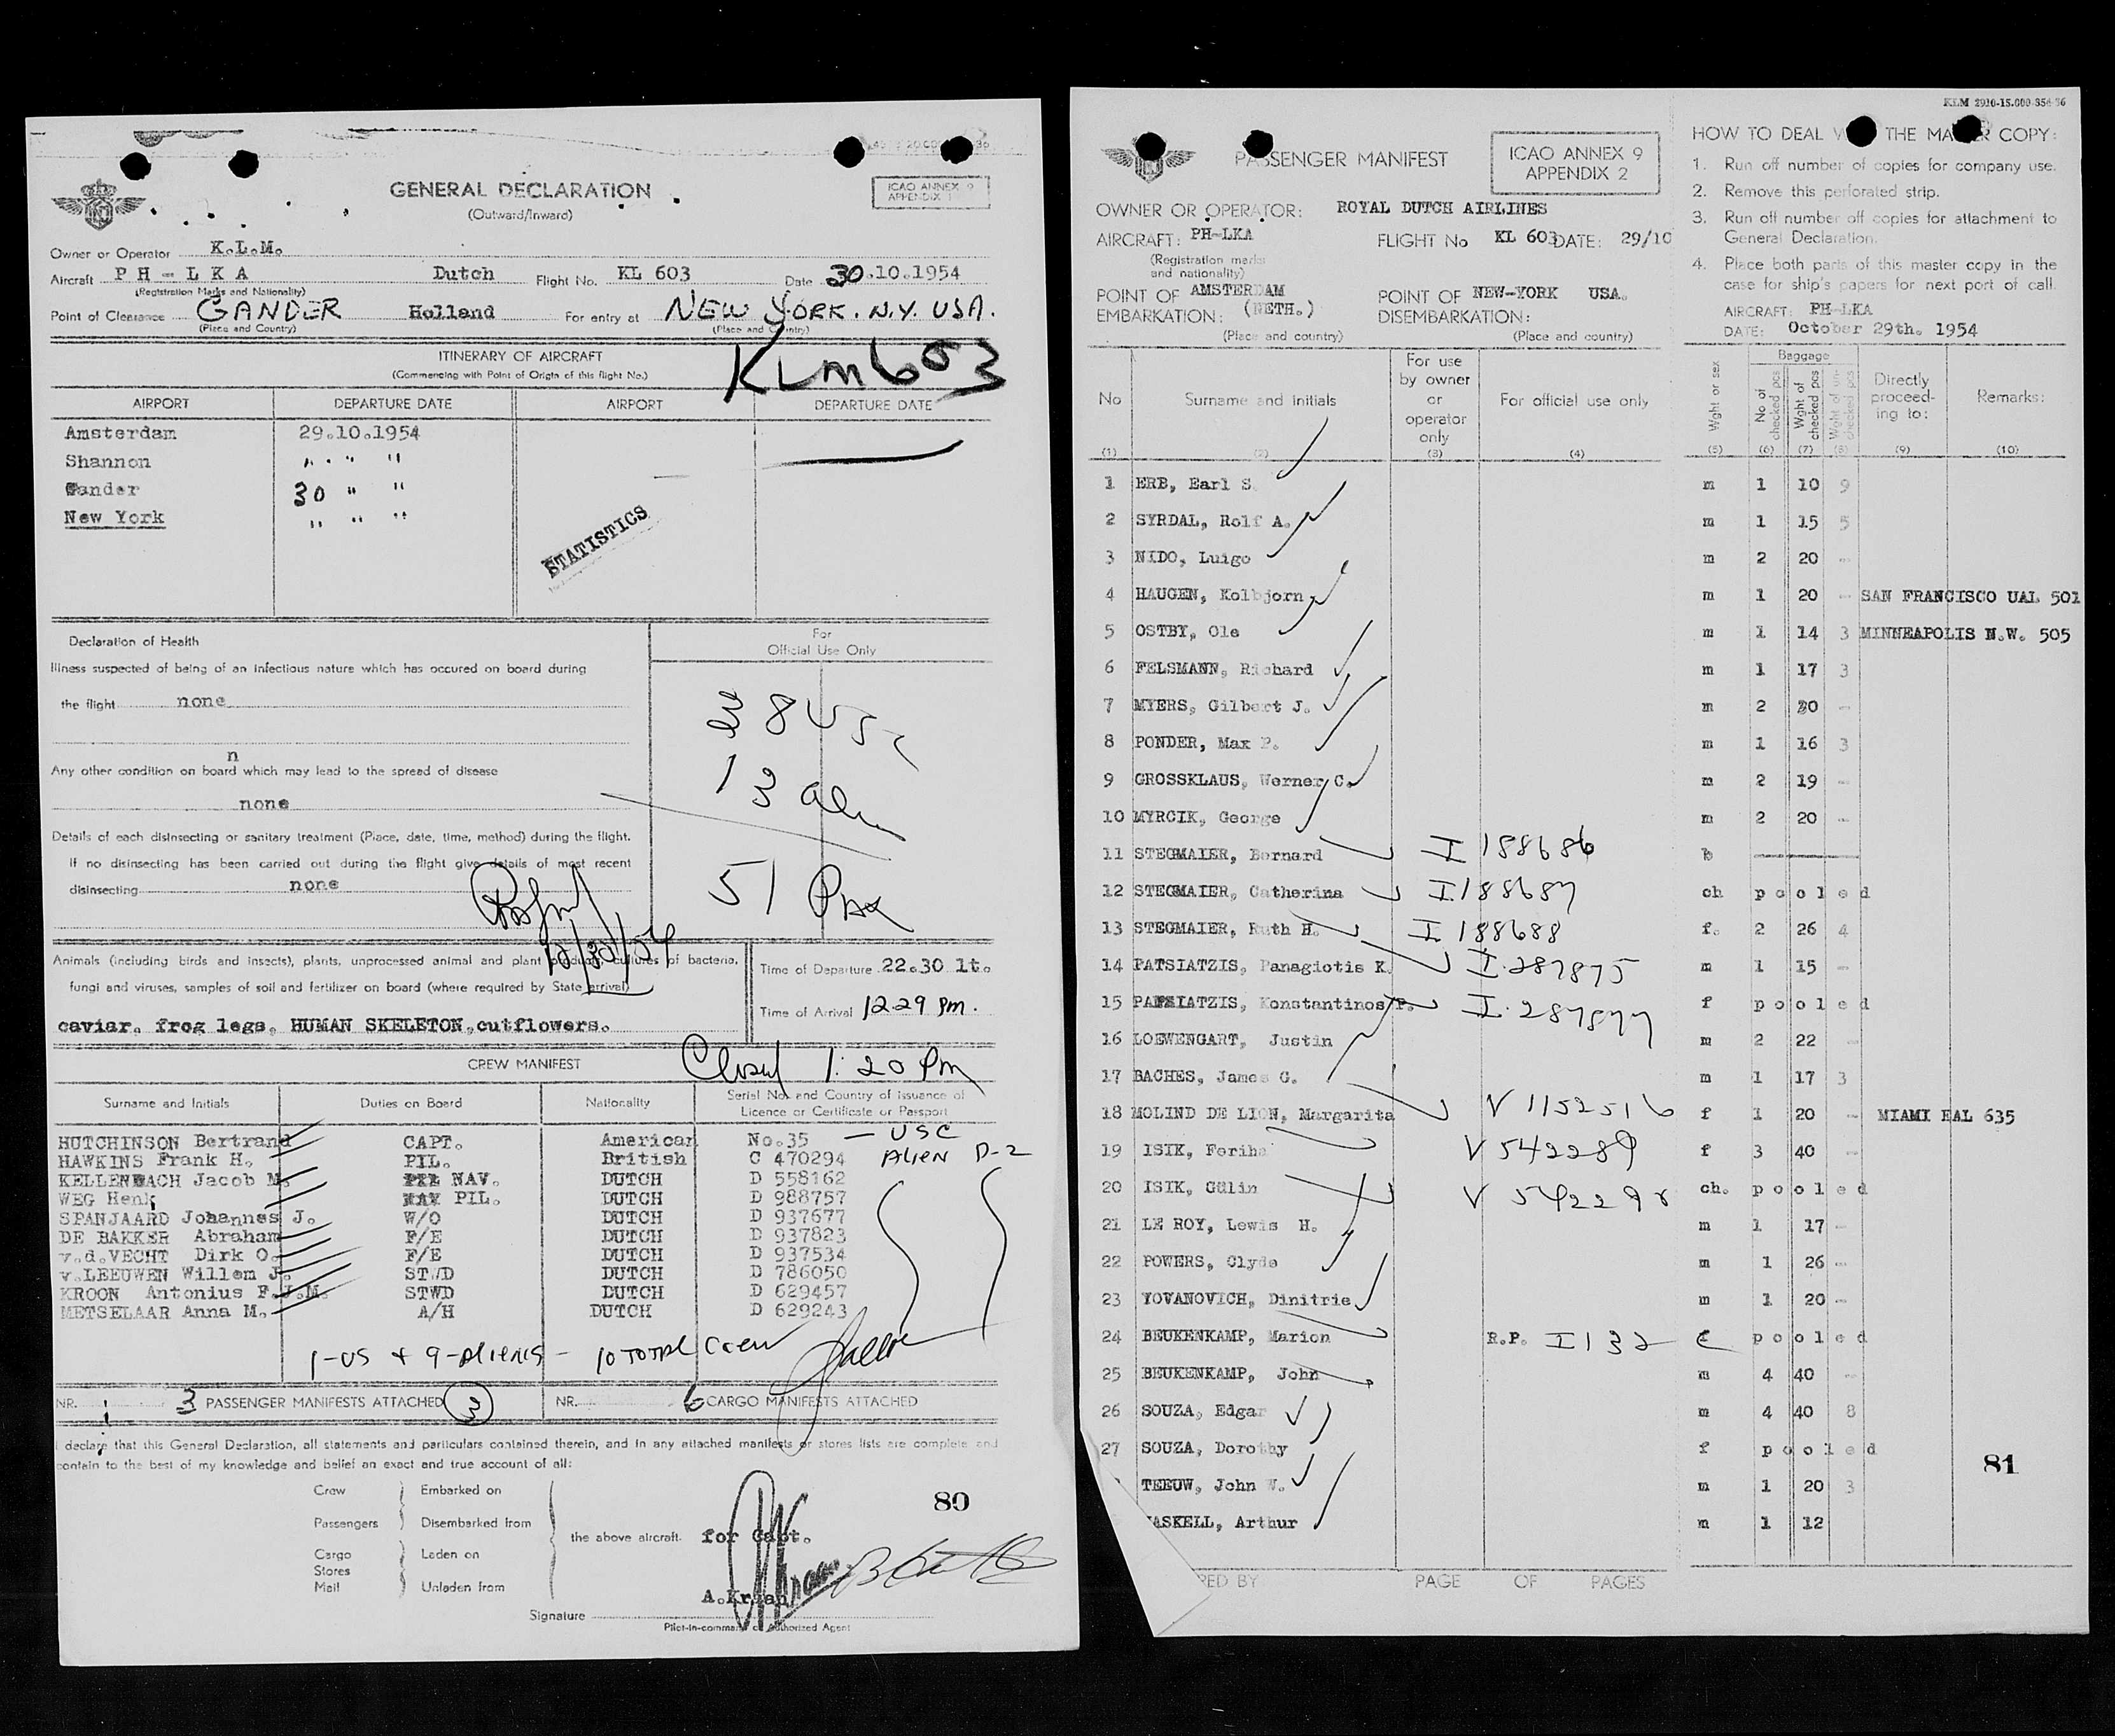 GENERAL DECLARATION
(Outward/Inward)
ICAO ANNEX 9
APPENDIX 1
Owner or Operator K.L.M.
Aircraft PH-LKA Dutch Flight No. KL 603 Date 30.10.1954
(Registration Marks and Nationality)
Point of Clearance GANDER Holland For entry at NEW YORK. N.Y. USA.
(Place and Country) (Place and Country)
ITINERARY OF AIRCRAFT
(Commencing with Point of Origin of this flight No.)
KLM 603
AIRPORT DEPARTURE DATE AIRPORT DEPARTURE DATE
Amsterdam 29.10.1954
Shannon " " "
Gander 30 " "
New York " " "
STATISTICS
Declaration of Health
For
Official Use Only
Illness suspected of being of an infectious nature which has occured on board during
the flight none
n
Any other condition on board which may lead to the spread of disease
none
Details of each disinsecting or sanitary treatment (Place, date, time, method) during the flight.
If no disinsecting has been carried out during the flight give details of most recent
disinsecting none
13
51 Pax
10/30/54
Animals (including birds and insects), plants, unprocessed animal and plant products, cultures of bacteria,
fungi and viruses, samples of soil and fertilizer on board (where required by State arrival)
caviar. frog legs. HUMAN SKELETON,cutflowers.
Time of Departure 22.30 lt.
Time of Arrival 12 29 pm.
CREW MANIFEST
Closed 1:20 pm
Surname and Initials Duties on Board Nationality Serial No. and Country of issuance of
Licence or Certificate or Passport
HUTCHINSON Bertrand CAPT. American No.35 — USC
HAWKINS Frank H. PIL. British C 470294 Alien D-2
KELLENBACH Jacob M. NAV. DUTCH D 558162
WEG Henk PIL. DUTCH D 988757
SPANJAARD Johannes J. W/O DUTCH D 937677
DE BAKKER Abraham F/E DUTCH D 937823
v.d.VECHT Dirk O. F/E DUTCH D 937534
v.LEEUWEN Willem J. STWD DUTCH D 786050
KROON Antonius F.J.M. STWD DUTCH D 629457
METSELAAR Anna M. A/H DUTCH D 629243
1-US + 9-Aliens - 10 Total Crew
NR. 3 PASSENGER MANIFESTS ATTACHED 3 NR. 6 CARGO MANIFESTS ATTACHED
I declare that this General Declaration, all statements and particulars contained therein, and in any attached manifests or stores lists are complete and
contain to the best of my knowledge and belief an exact and true account of all:
Crew Embarked on
Passengers Disembarked from
the above aircraft. for Capt.
Cargo Laden on
Stores
Mail Unladen from
80
Signature
Pilot-in-command or Authorized Agent
KLM 2910-15.000-354-36
PASSENGER MANIFEST
ICAO ANNEX 9
APPENDIX 2
OWNER OR OPERATOR: ROYAL DUTCH AIRLINES
AIRCRAFT: PH-LKA FLIGHT No KL 603 DATE: 29/10
(Registration marks
and nationality)
POINT OF EMBARKATION: AMSTERDAM (NETH.) POINT OF DISEMBARKATION: NEW-YORK USA.
(Place and country) (Place and country)
HOW TO DEAL WITH THE MASTER COPY:
1. Run off number of copies for company use.
2. Remove this perforated strip.
3. Run off number off copies for attachment to
General Declaration.
4. Place both parts of this master copy in the
case for ship's papers for next port of call.
AIRCRAFT: PH-LKA
DATE: October 29th. 1954
No Surname and initials For use by owner or operator only For official use only Wght or sex Baggage No. of checked pcs Wght of checked pcs Wght of un-checked pcs Directly proceed-ing to: Remarks:
(1) (2) (3) (4) (5) (6) (7) (8) (9) (10)
1 ERB, Earl S. m 1 10 9
2 SYRDAL, Rolf A. m 1 15 5
3 NIDO, Luigo m 2 20 -
4 HAUGEN, Kolbjorn m 1 20 - SAN FRANCISCO UAL 501
5 OSTBY, Ole m 1 14 3 MINNEAPOLIS N.W. 505
6 FELSMANN, Richard m 1 17 3
7 MYERS, Gilbert J. m 2 20 -
8 PONDER, Max P. m 1 16 3
9 GROSSKLAUS, Werner C. m 2 19 -
10 MYRCIK, George m 2 20 -
11 STEGMAIER, Bernard I 188686 b
12 STEGMAIER, Catherina I.188687 ch pooled
13 STEGMAIER, Ruth H. I 188688 f. 2 26 4
14 PATSIATZIS, Panagiotis K. I.287875 m 1 15 -
15 PATSIATZIS, Konstantinos P. I.287877 f pooled
16 LOEWENGART, Justin m 2 22 -
17 BACHES, James G. m 1 17 3
18 MOLIND DE LION, Margarita V 1152516 f 1 20 - MIAMI EAL 635
19 ISIK, Feriha V 542289 f 3 40 -
20 ISIK, Gülin ch. pooled
21 LE ROY, Lewis H. m 1 17 -
22 POWERS, Clyde m 1 26 -
23 YOVANOVICH, Dinitrie m 1 20 -
24 BEUKENKAMP, Marion R.P. I 132 f pooled
25 BEUKENKAMP, John m 4 40 -
26 SOUZA, Edgar m 4 40 8
27 SOUZA, Dorothy f pooled
TEEUW, John W. m 1 20 3
HASKELL, Arthur m 1 12
81
PAGE OF PAGES